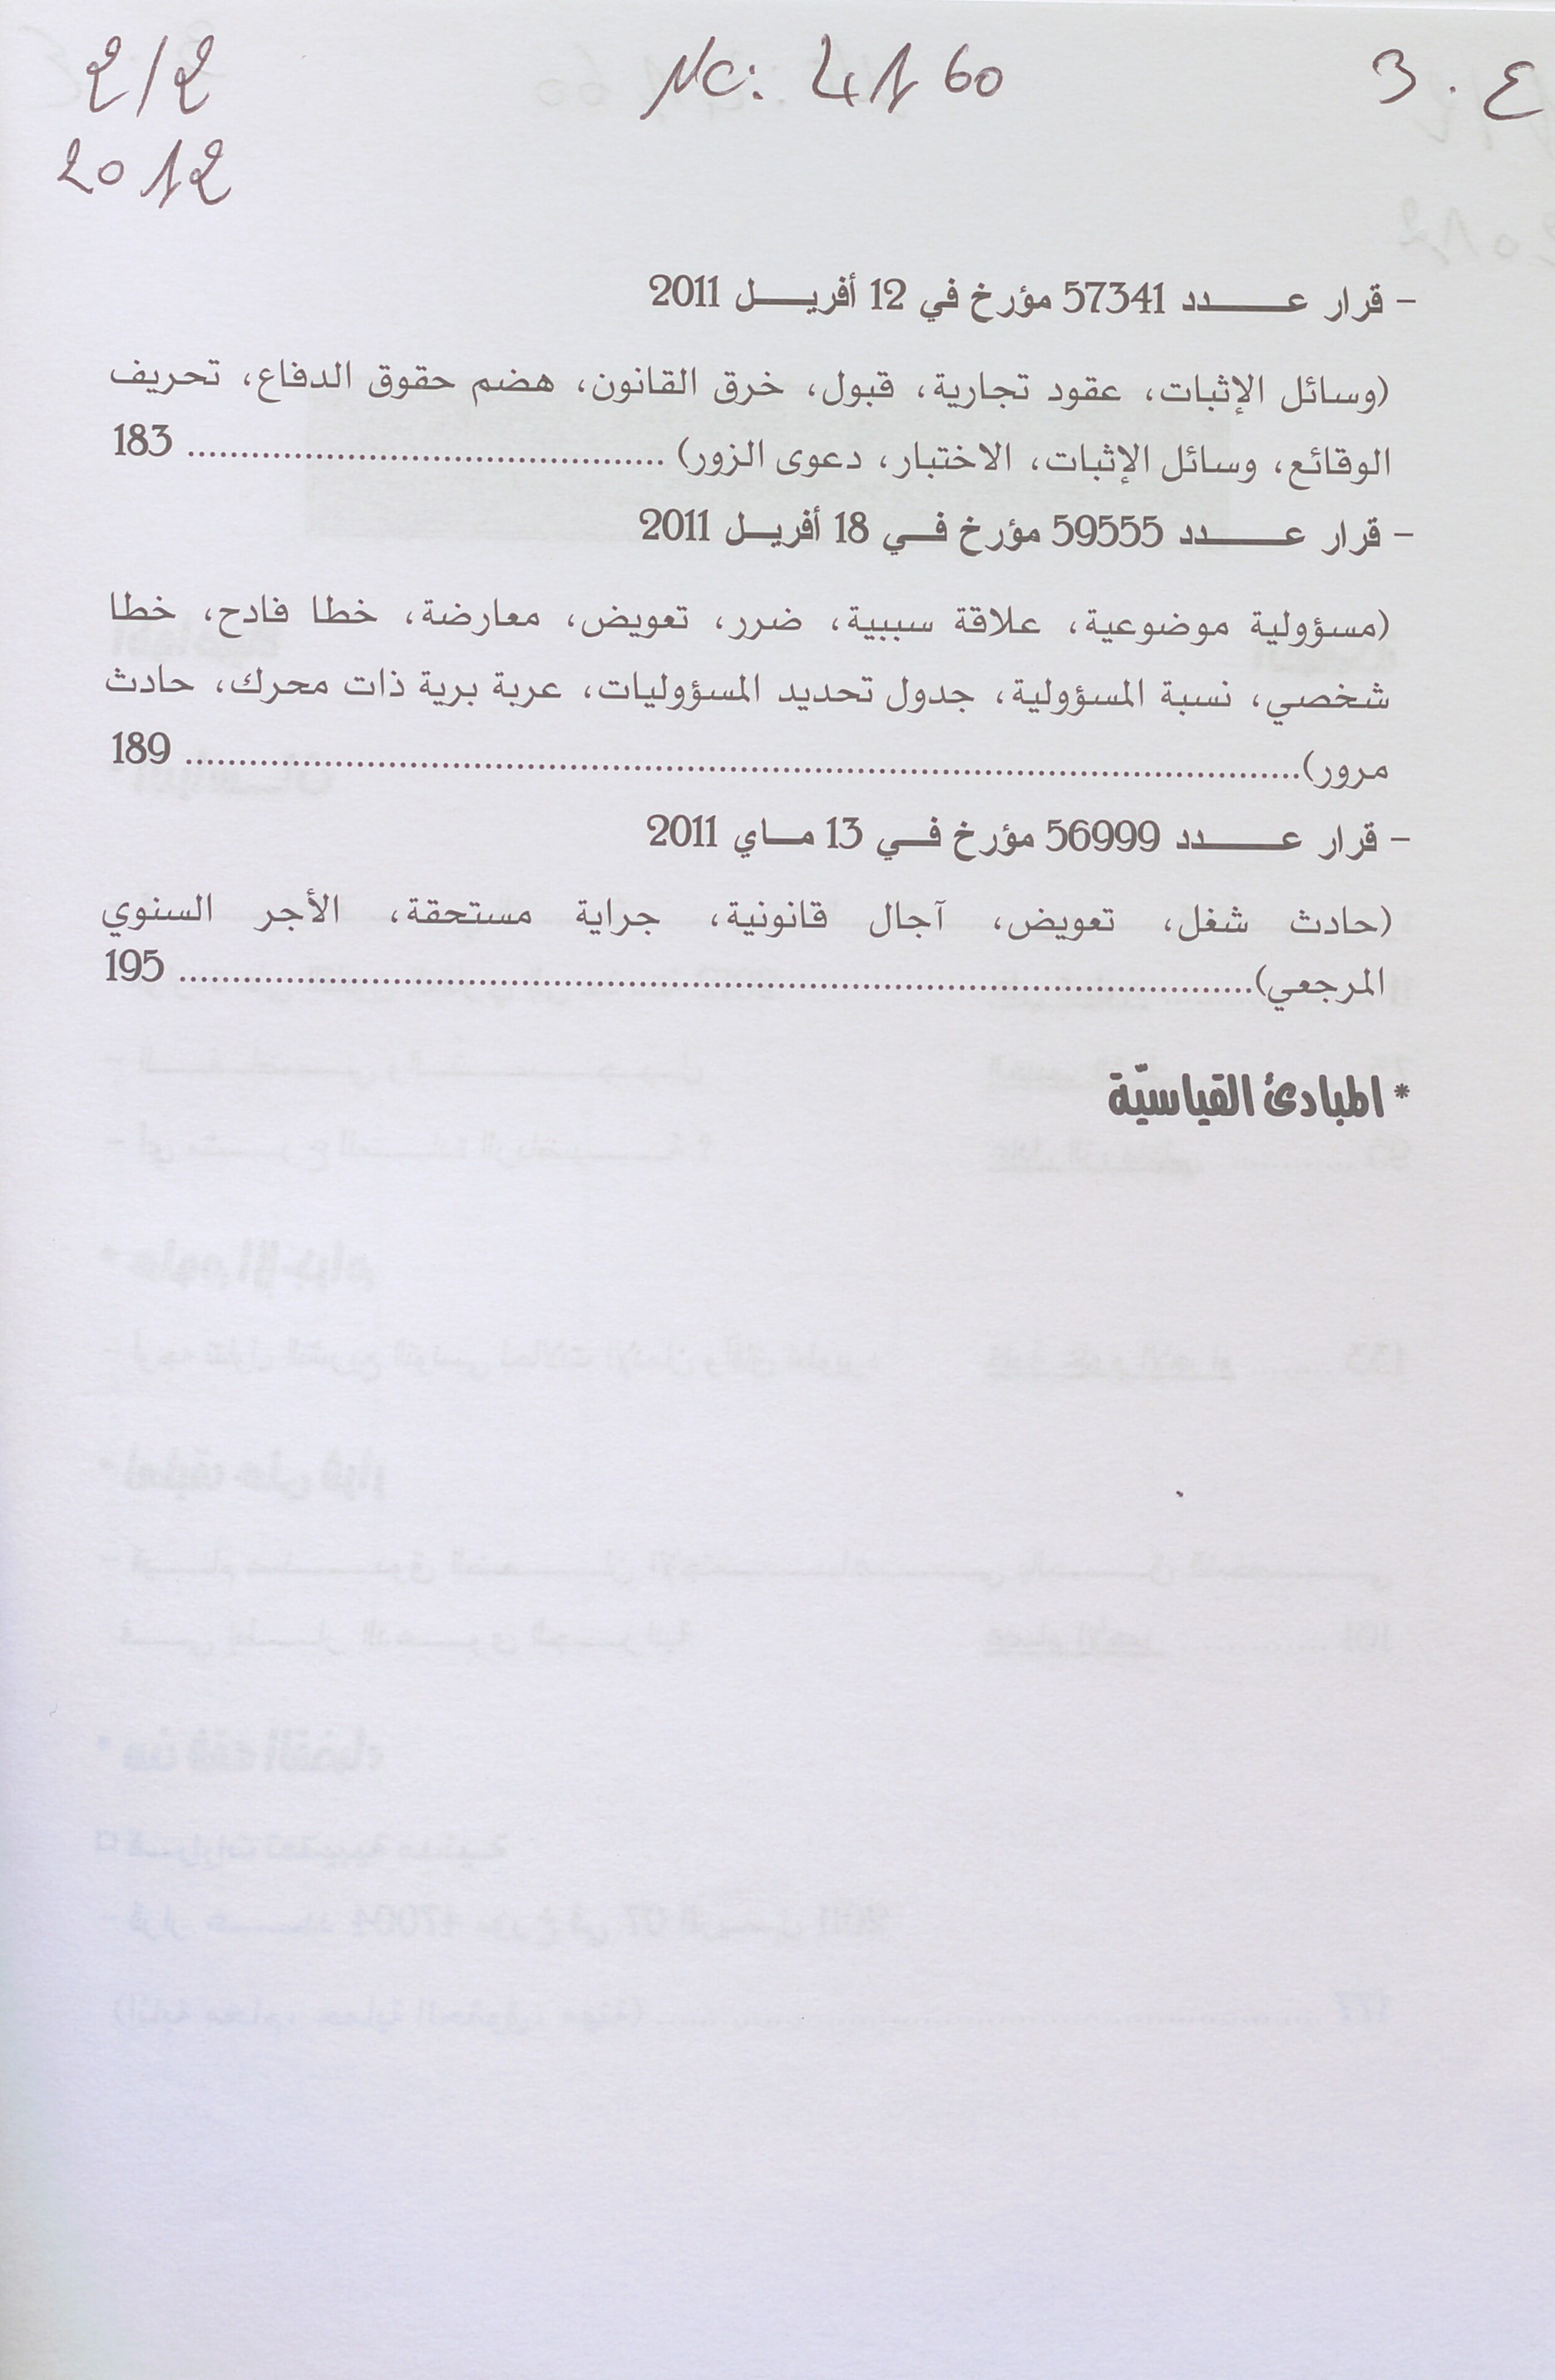 ع . 3
NC: 4160
2/2
2012
– قرار عدد 57341 مؤرخ في 12 أفريل 2011
(وسائل الإثبات، عقود تجارية، قبول، خرق القانون، هضم حقوق الدفاع، تحريف
الوقائع، وسائل الإثبات، الاختبار، دعوى الزور) ............................................ 183
– قرار عدد 59555 مؤرخ في 18 أفريل 2011
(مسؤولية موضوعية، علاقة سببية، ضرر، تعويض، معارضة، خطا فادح، خطا
شخصي، نسبة المسؤولية، جدول تحديد المسؤوليات، عربة برية ذات محرك، حادث
مرور)............................................................................................ 189
– قرار عدد 56999 مؤرخ في 13 ماي 2011
(حادث شغل، تعويض، آجال قانونية، جراية مستحقة، الأجر السنوي
المرجعي)........................................................................................ 195
* المبادئ القياسيّة